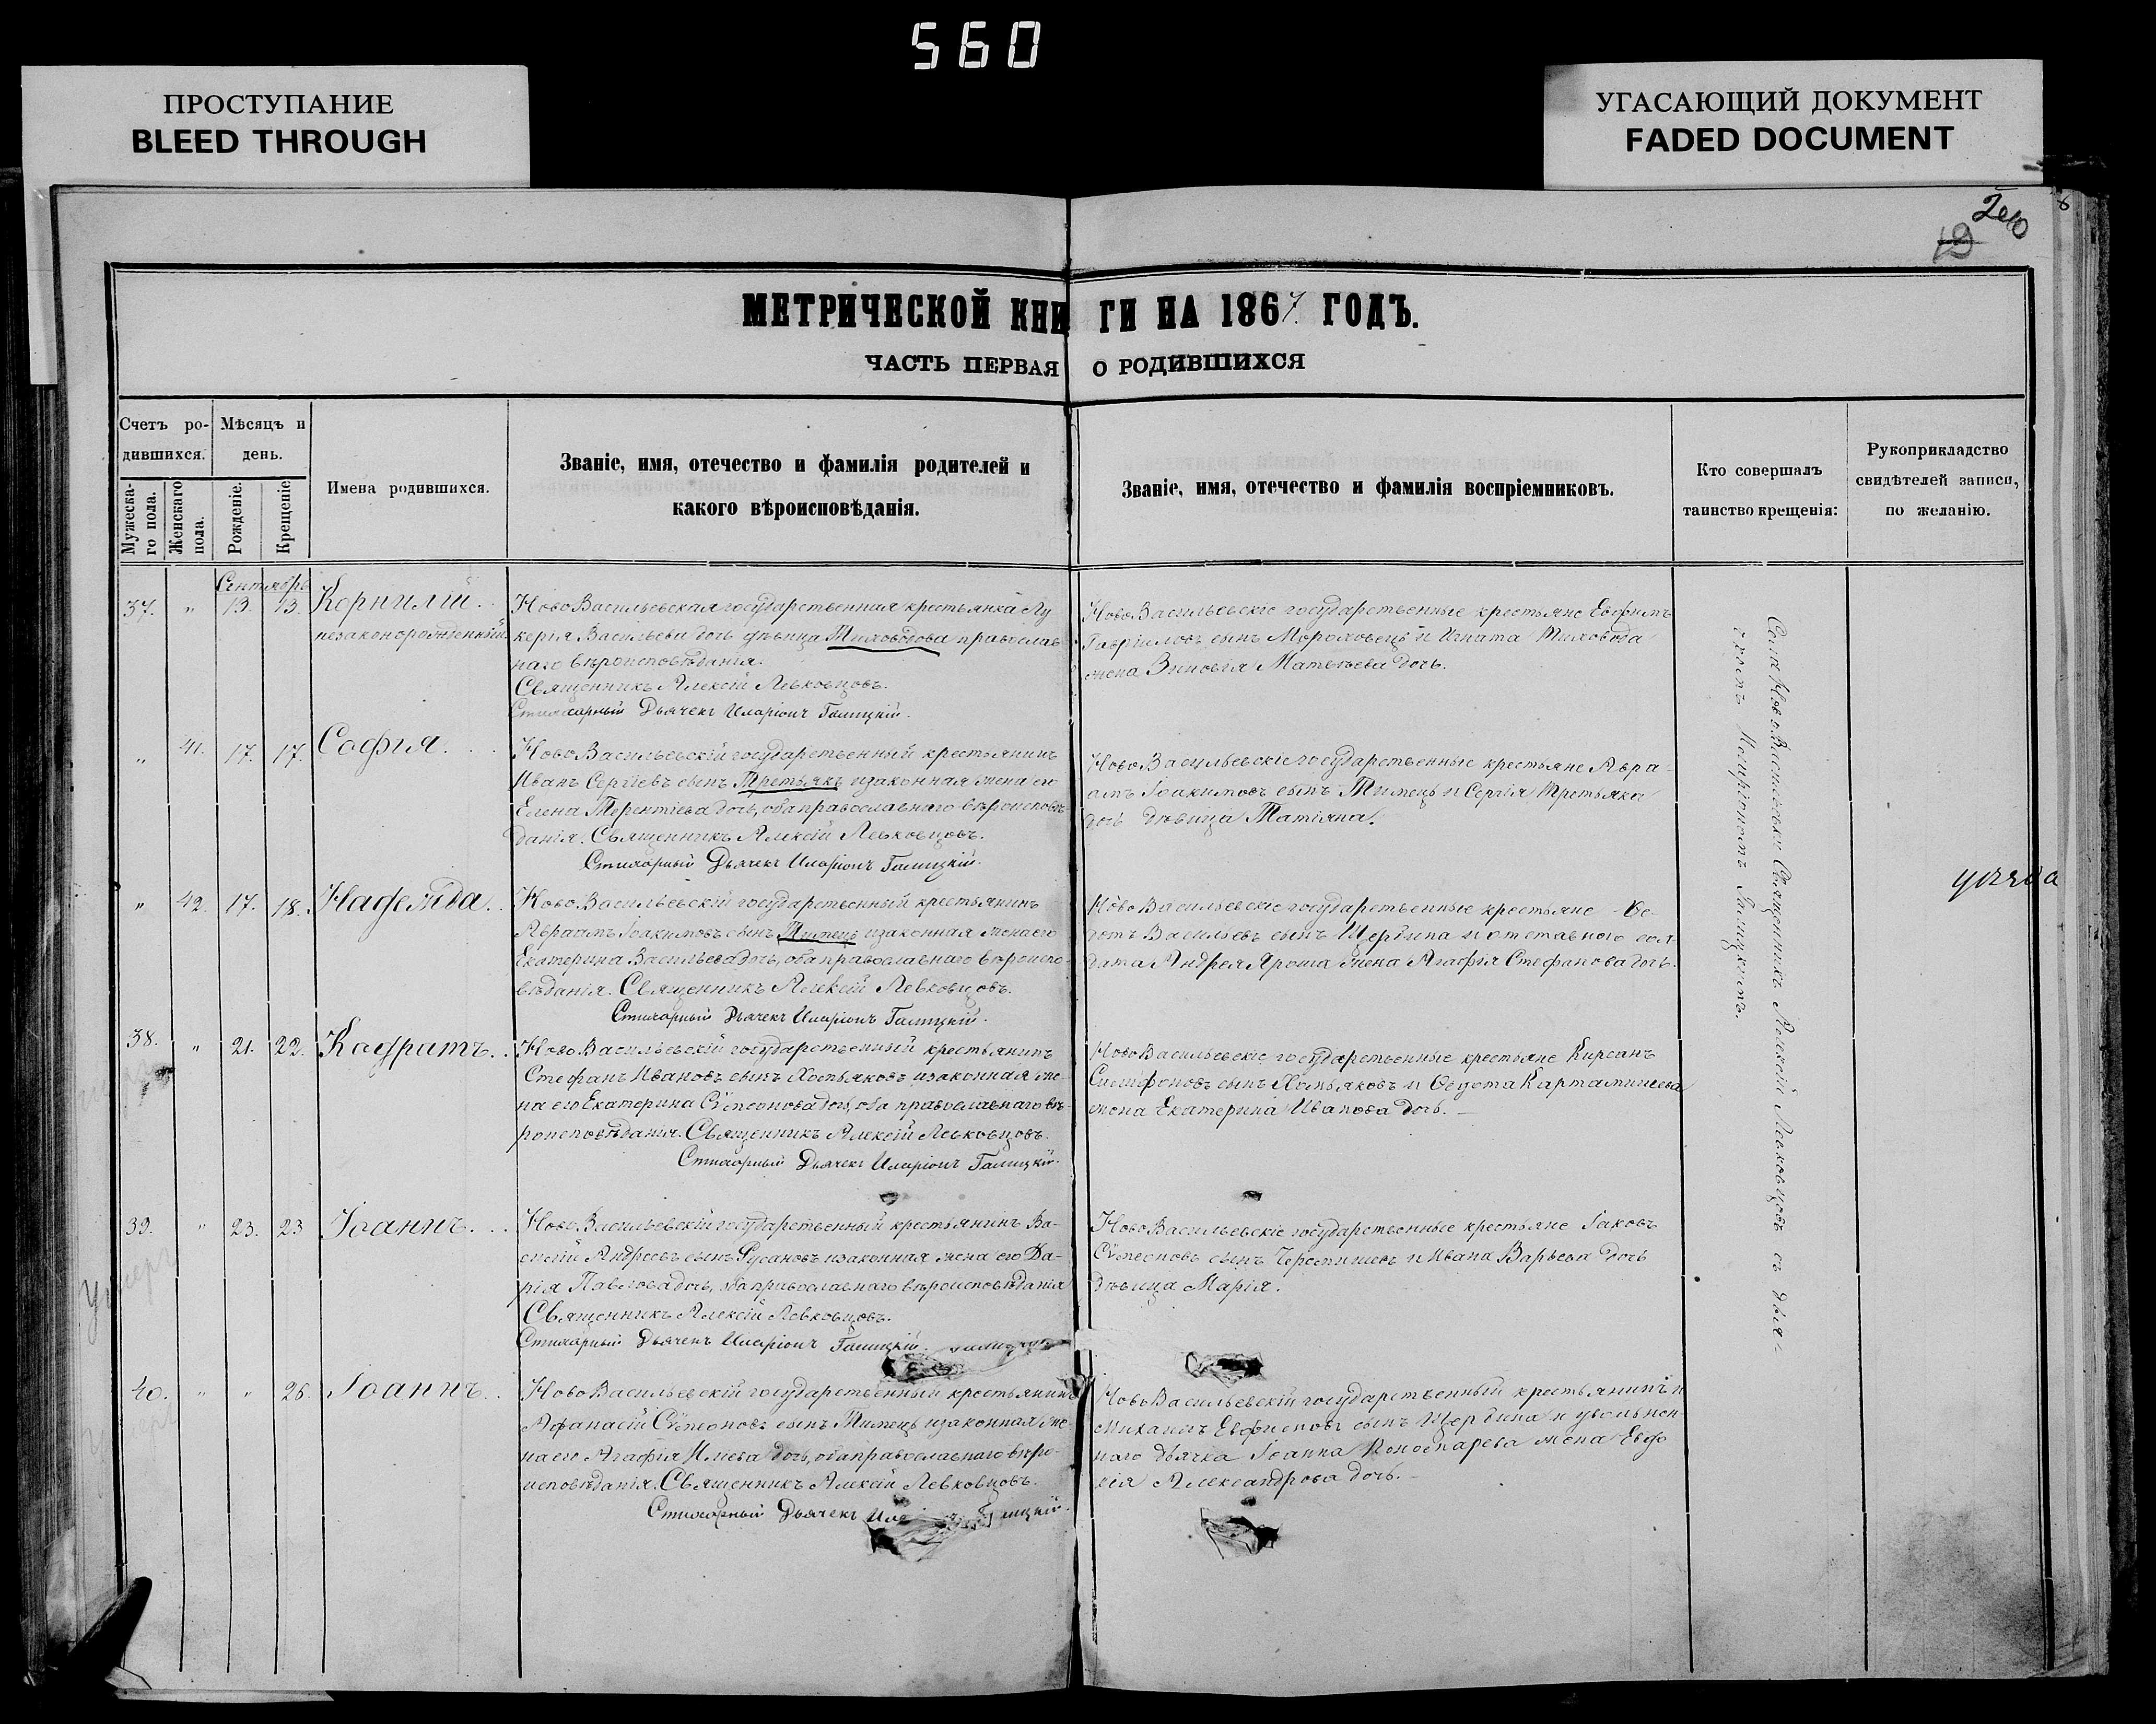 560
ПРОСТУПАНИЕ
BLEED THROUGH
УГАСАЮЩИЙ ДОКУМЕНТ
FADED DOCUMENT
МЕТРИЧЕСКОЙ КНИГИ НА 1867. ГОДЪ.
ЧАСТЬ ПЕРВАЯ О РОДИВШИХСЯ
Счетъ ро-
дившихся.
Мѣсяцъ и
день.
Мужеска-
го пола.
Женскаго
пола.
Рожденіе.
Крещеніе
Имена родившихся.
Званіе, имя, отечество и фамилія родителей и
какого вѣроисповѣданія.
Званіе, имя, отечество и фамилія воспріемниковъ.
Кто совершалъ
таинство крещенія:
Рукоприкладство
свидѣтелей записи,
по желанію.
Сентябрь
37. " 13. 13. Корнилій.
незаконорожденный.
НовоВасильевская государственная крестьянка Лу
керія Васильева дочь дѣвица православ
наго вѣроисповѣданія.
Священникъ Алексій Левковцовъ.
Стихарный Дьячекъ Иларіонъ Галицкій.
НовоВасильевскіе государственные крестьяне Евфимъ
Гавріиловъ сынъ и Игната
жена Зиновія Матвѣева дочь.
" 41. 17. 17. Софія.
НовоВасильевскій государственный крестьянинъ
Иванъ Сергіевъ сынъ Третьякъ и законная жена его
Елена Терентіева дочь, оба православнаго вѣроисповѣ-
данія. Священникъ Алексій Левковцовъ.
Стихарный Дьячекъ Иларіонъ Галицкій.
НовоВасильевскіе государственные крестьяне Авра-
амъ Іоакимовъ сынъ Тимецъ и Сергія Третьяка
дочь дѣвица Татіана.
" 42. 17. 18. Надежда.
НовоВасильевскій государственный крестьянинъ
Авраамъ Іоакимовъ сынъ Тимецъ и законная жена его
Екатерина Васильева дочь, оба православнаго вѣроиспо-
вѣданія. Священникъ Алексій Левковцовъ.
Стихарный Дьячекъ Иларіонъ Галицкій.
НовоВасильевскіе государственные крестьяне Ѳе-
дотъ Васильевъ сынъ Щербина и отставного сол-
дата Андрея Яроша жена Агафія Стефанова дочь.
38. " 21. 22. Кодратъ.
НовоВасильевскій государственный крестьянинъ
Стефанъ Ивановъ сынъ Хомяковъ и законная же-
на его Екатерина Сѵмеонова дочь, оба православнаго вѣ-
роисповѣданія. Священникъ Алексій Левковцовъ.
Стихарный Дьячекъ Иларіонъ Галицкій.
НовоВасильевскіе государственные крестьяне Кирсанъ
сынъ Хомяковъ и Ѳедота Картамишева
жена Екатерина Иванова дочь.
39. " 23. 23 Іоаннъ.
НовоВасильевскій государственный крестьянинъ Ва-
силій Андреевъ сынъ Русановъ и законная жена его Да-
рія Павлова дочь, оба православнаго вѣроисповѣданія
Священникъ Алексій Левковцовъ.
Стихарный Дьячекъ Иларіонъ Галицкій.
НовоВасильевскіе государственные крестьяне Іаковъ
Сѵмеоновъ сынъ и Ивана дочь
дѣвица Марія.
40. " " 26. Іоаннъ.
НовоВасильевскій государственный крестьянинъ
Афанасій Сѵмеоновъ сынъ Тимецъ и законная же-
на его Агафія Иліева дочь, оба православнаго вѣро-
исповѣданія. Священникъ Алексій Левковцовъ.
Стихарный Дьячекъ Галицкій.
НовоВасильевскій государственный крестьянинъ
Михаилъ Евфимовъ сынъ Щербина и уволънен-
наго дьячка Іоанна жена
Александрова дочь.
Села НовоВасильевки Священникъ Алексій Левковцовъ съ дья-
чкомъ Иларіономъ Галицкимъ.